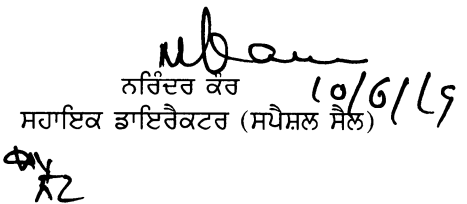 ਨਰਿੰਦਰ ਕੌਰ
10/6/19
ਸਹਾਇਕ ਡਾਇਰੈਕਟਰ (ਸਪੈਸ਼ਲ ਸੈਲ)